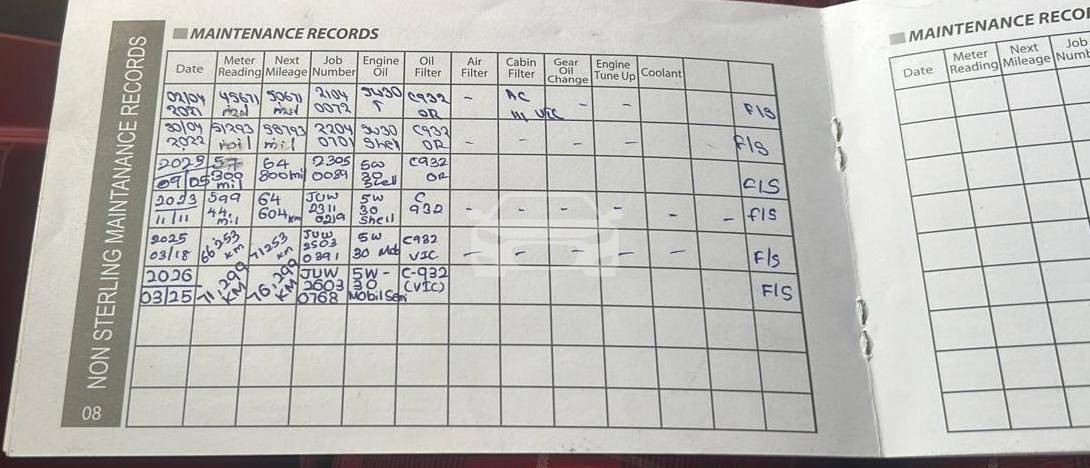 NON STERLING MAINTANANCE RECORDS
08
MAINTENANCE RECORDS
Date Meter Reading Next Mileage Job Number Engine Oil Oil Filter Air Filter Cabin Filter Gear Oil Change Engine Tune Up Coolant
02/04 45671 50671 2104 5W30 C932 - AC - - F/S
2021 mil mil 0072 T OR VIC
30/04 51293 58793 2204 5W30 C932 - - - - F/S
2022 mil mil 0701 Shell OR
2023 57 64 2305 5W C932
09/05 300 800mil 0089 30 OR F/S
mil Shell
2023 599 64 JUW 5W C - - - - - - F/S
11/11 44 604km 2311 30 932
mil 0219 Shell
2025 66,253 71253 JUW 5W C932 - - - - - F/S
03/18 km km 2503 30 Mob VIC
0391
2026 71,299 76,299 JUW 5W- C-932 F/S
03/25 KM KM 2603 30 (VIC)
0768 Mobil Semi
MAINTENANCE RECO
Date Meter Reading Next Mileage Job Numb